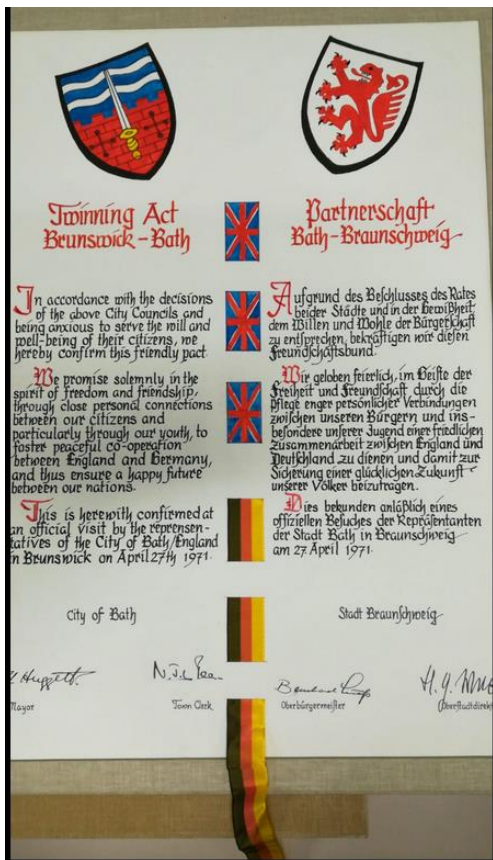 Twinning Act
Brunswick – Bath
In accordance with the decisions
of the above City Councils and
being anxious to serve the will and
well-being of their citizens, we
hereby confirm this friendly pact.
We promise solemnly in the
spirit of freedom and friendship,
through close personal connections
between our citizens and
particularly through our youth, to
foster peaceful co-operation
between England and Germany,
and thus ensure a happy future
between our nations.
This is herewith confirmed at
an official visit by the reprensen-
tatives of the City of Bath/England
in Brunswick on April 27th 1971.
City of Bath
Huggett.
Mayor
Town Clerk
Partnerschaft
Bath-Braunschweig
Aufgrund des Beſchluſſes des Rates
beider Städte und in der Gewißheit,
dem Willen und Wohle der Bürgerſchaft
zu entſprechen, bekräftigen wir dieſen
Freundſchaftsbund.
Wir geloben feierlich, im Geiſte der
Freiheit und Freundſchaft, durch die
Pflege enger perſönlicher Verbindungen
zwiſchen unſeren Bürgern und ins-
beſondere unſerer Jugend einer friedlichen
Zuſammenarbeit zwiſchen England und
Deutſchland zu dienen und damit zur
Sicherung einer glücklichen Zukunft
unſerer Völker beizutragen.
Dies bekunden anläßlich eines
offiziellen Beſuches der Repräſentanten
der Stadt Bath in Braunſchweig
am 27. April 1971.
Stadt Braunſchweig
Bernhard
Oberbürgermeiſter
H. G.
Oberſtadtdirekt